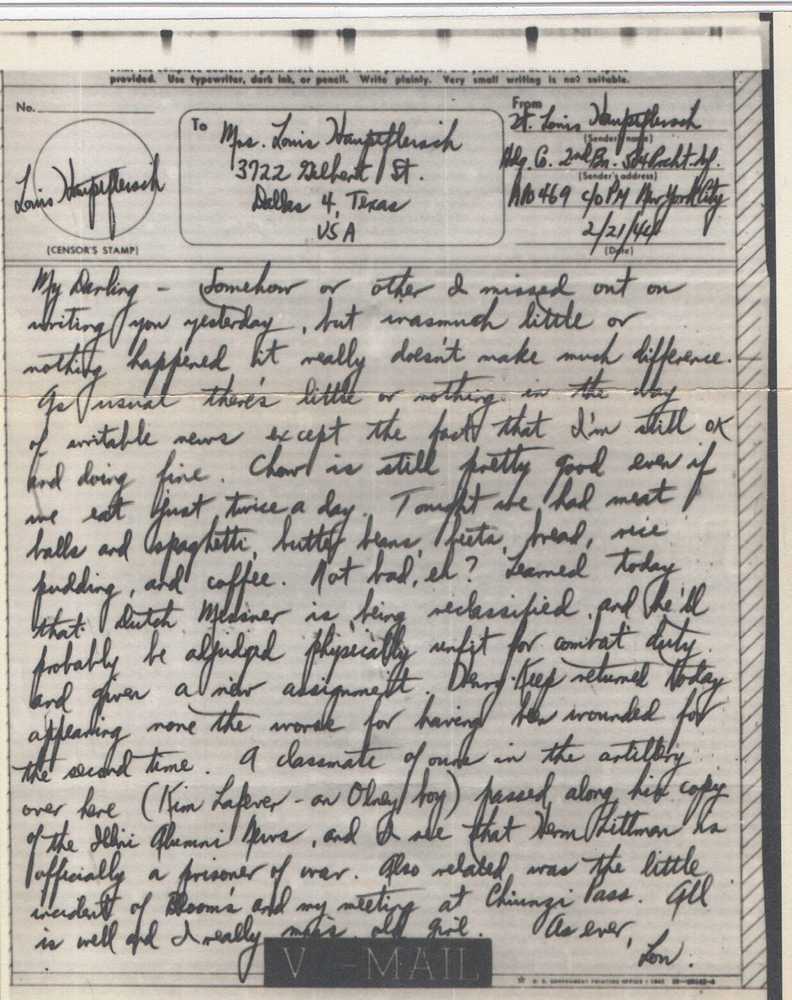 provided. Use typewriter, dark ink, or pencil. Write plainly. Very small writing is not suitable.
No.
Louis Hauptfleisch
(CENSOR'S STAMP)
To
Mrs. Louis Hauptfleisch
3722 Gilbert St.
Dallas 4, Texas
USA
From
Lt. Louis Hauptfleisch
(Sender's name)
Hdq. Co. 2nd Bn. 504 Prcht. Inf.
(Sender's address)
APO 469 c/o PM New York City
2/21/44
(Date)
My Darling - Somehow or other I missed out on
writing you yesterday, but inasmuch little or
nothing happened it really doesn't make much difference.
As usual there's little or nothing in the way
of writable news except the fact that I'm still OK
and doing fine. Chow is still pretty good even if
we eat just twice a day. Tonight we had meat
balls and spaghetti, butter beans, beets, bread, rice
pudding, and coffee. Not bad, eh? Learned today
that Dutch Messner is being reclassified and he'll
probably be adjudged physically unfit for combat duty
and given a new assignment. Keep returned today
appearing none the worse for having been wounded for
the second time. A classmate of ours in the artillery
over here (Kim Lafever - an Olney boy) passed along his copy
of the Illini Alumni News, and I see that Herm Littman is
officially a prisoner of war. Also related was the little
incident of Bloom's and my meeting at Chiunzi Pass. All
is well and I really miss old girl. As ever,
Lou.
V - MAIL
U. S. GOVERNMENT PRINTING OFFICE